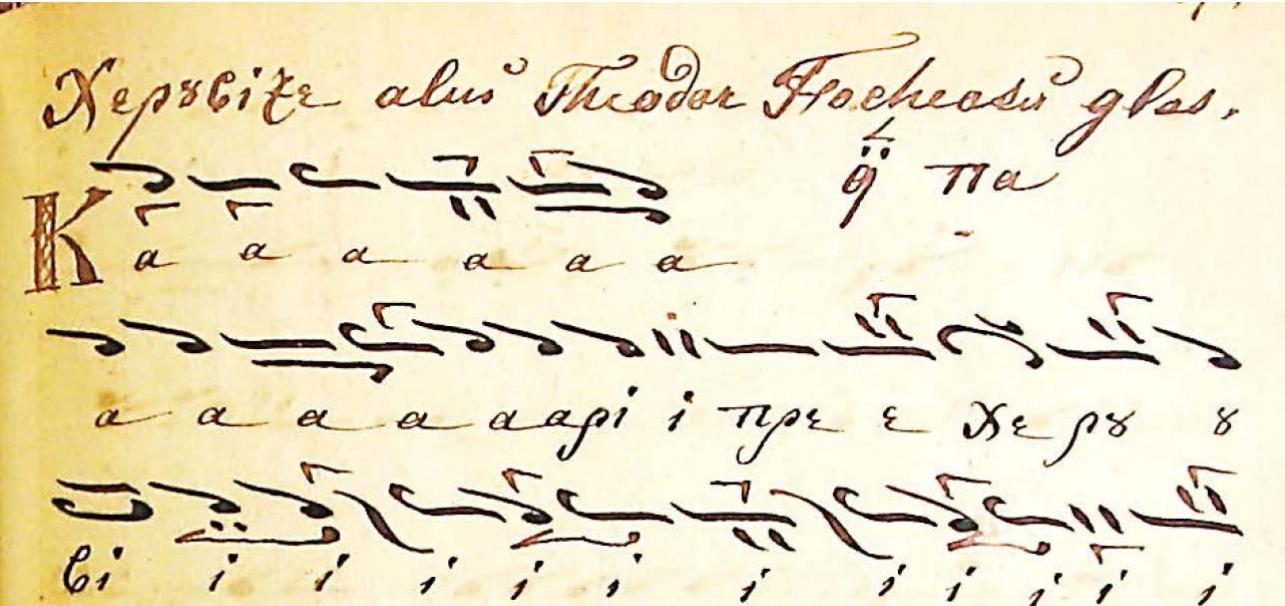 Херꙋвізе alui Theodor Focheosu glas.
ꙗ҃ Па
К а а а а а а
а а а а аарі і пре е Херꙋ ꙋ
ві і і і і і і і і і і і